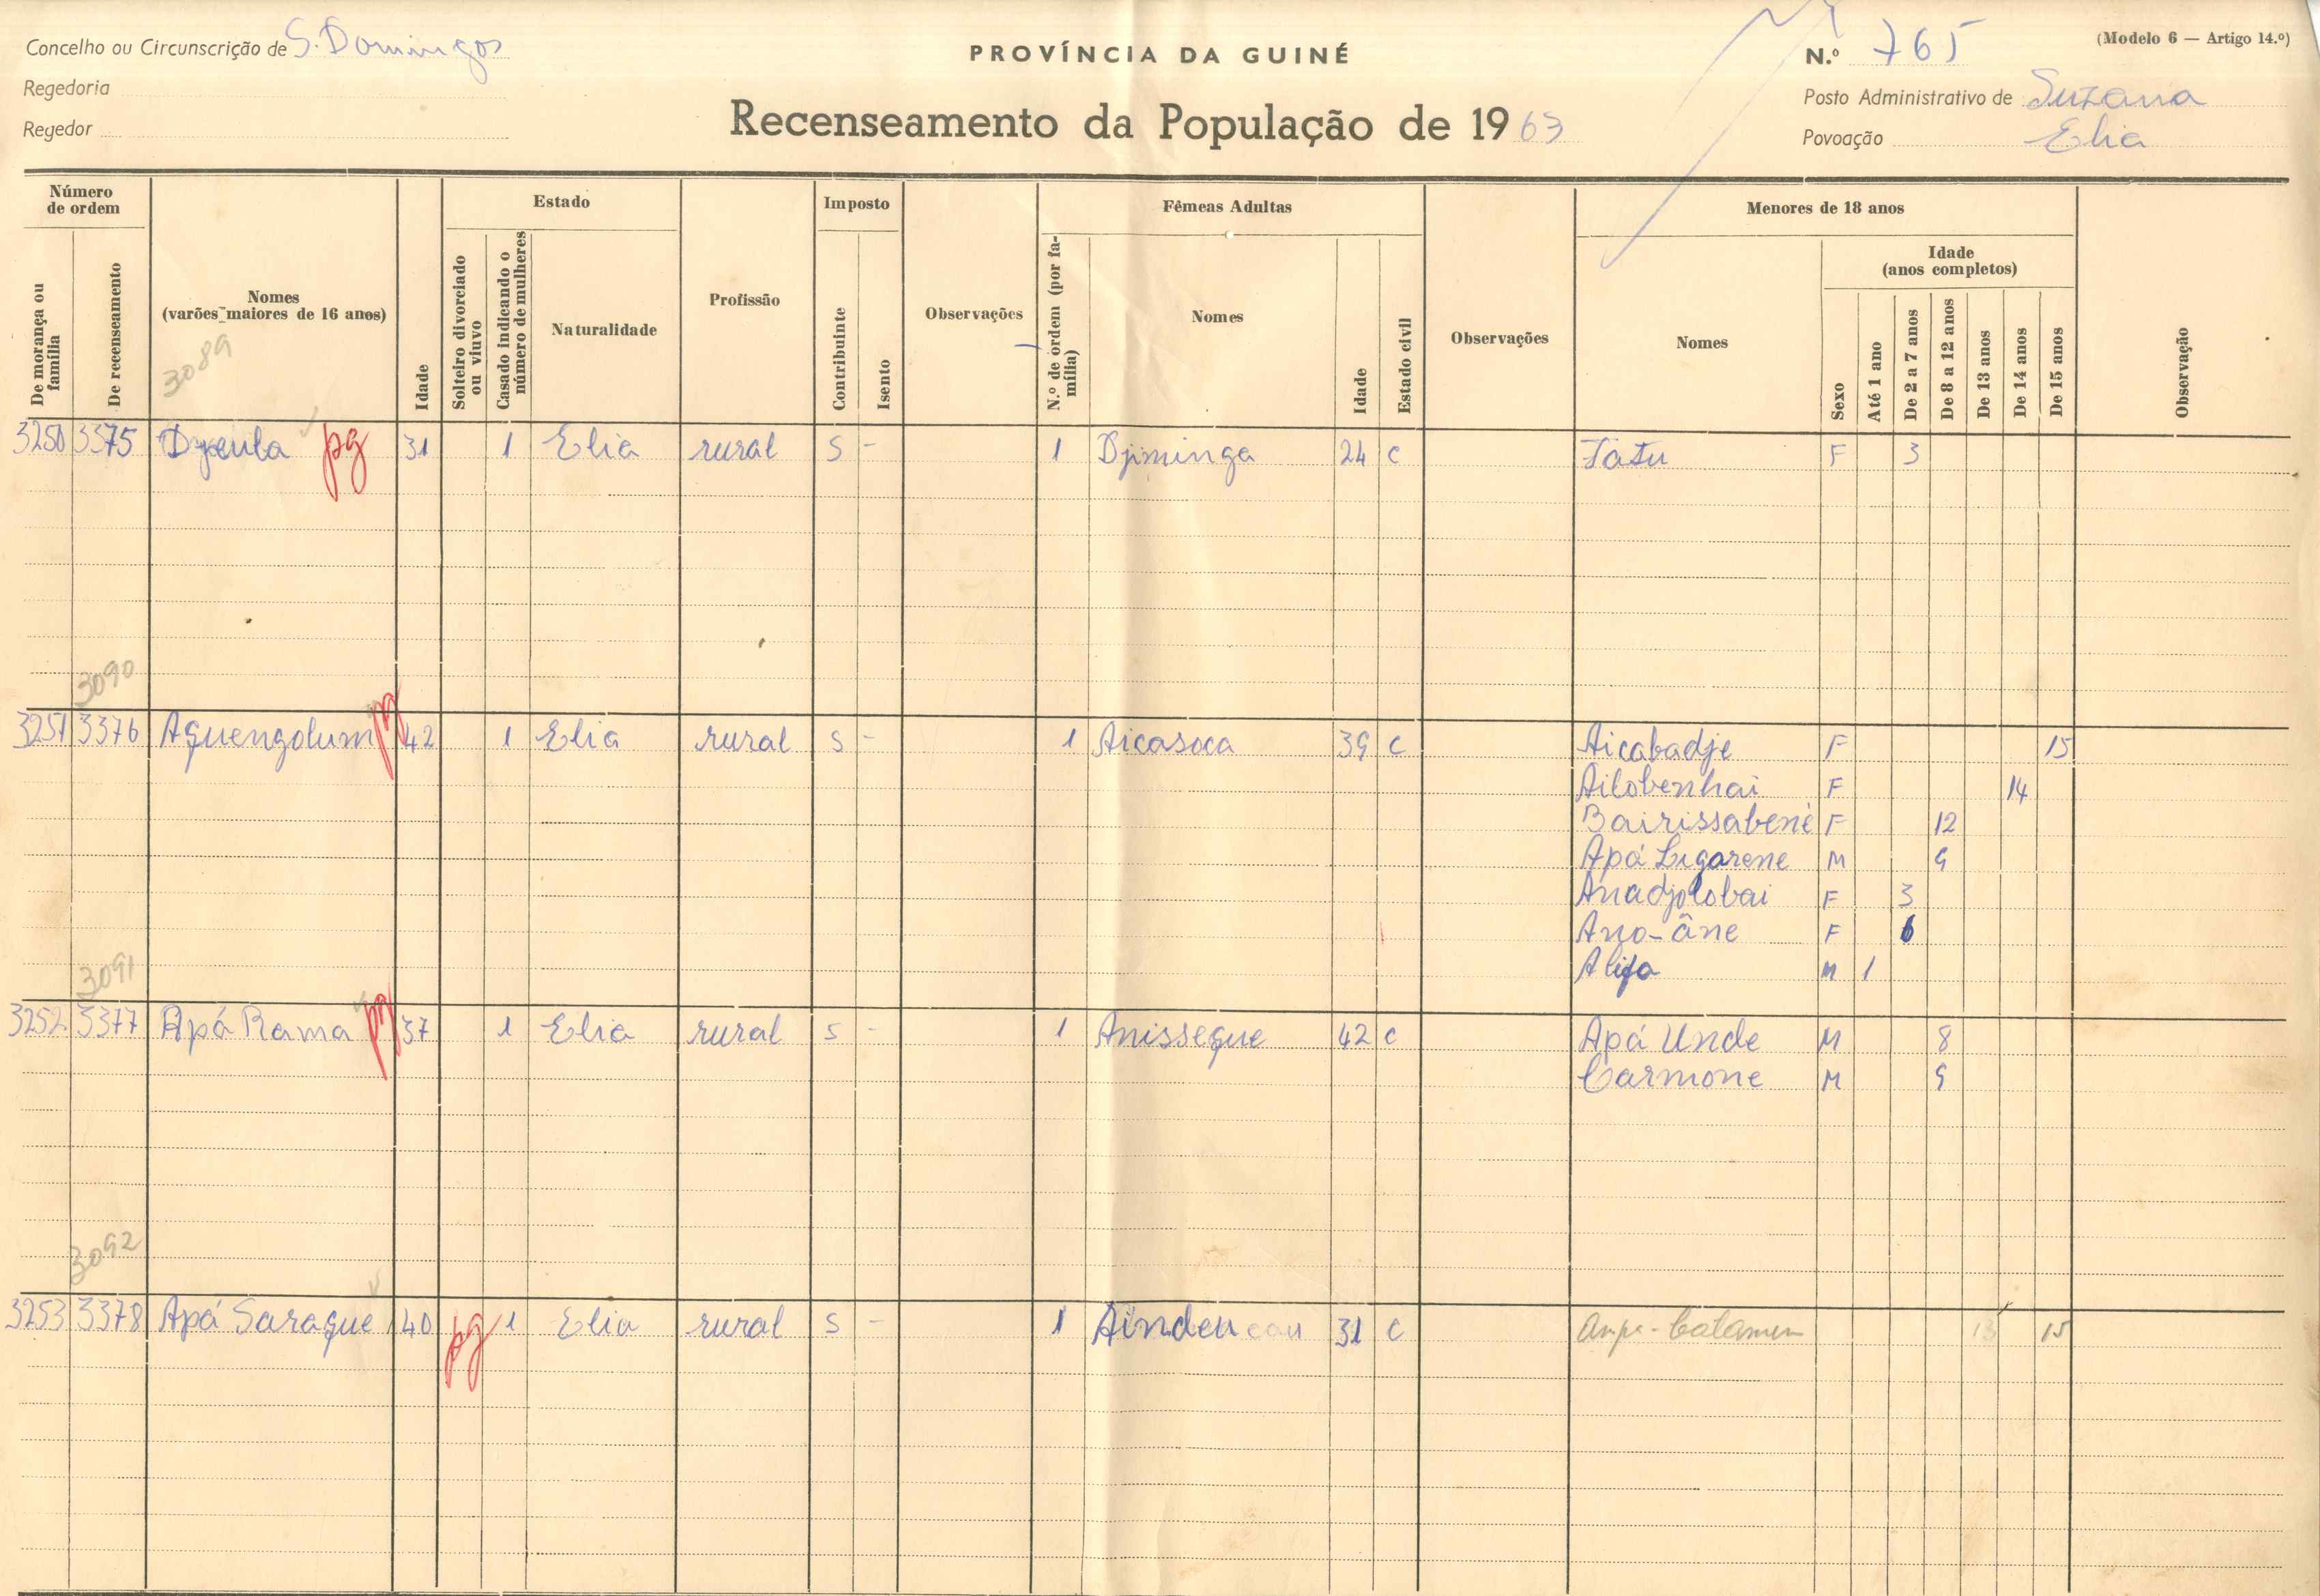 Concelho ou Circunscrição de S. Domingos
Regedoria
Regedor
PROVÍNCIA DA GUINÉ
Recenseamento da População de 1963
(Modelo 6 — Artigo 14.º)
N.º 765
Posto Administrativo de Suzana
Povoação Elia
Número de ordem
De morança ou família
De recenseamento
Nomes (varões maiores de 16 anos)
Idade
Estado
Solteiro divorciado ou viuvo
Casado indicando o número de mulheres
Naturalidade
Profissão
Imposto
Contribuinte
Isento
Observações
Fêmeas Adultas
N.º de ordem (por família)
Nomes
Idade
Estado civil
Observações
Menores de 18 anos
Nomes
Sexo
Idade (anos completos)
Até 1 ano
De 2 a 7 anos
De 8 a 12 anos
De 13 anos
De 14 anos
De 15 anos
Observação
3089
3250 3375 pg 31 1 Elia rural S - 1 Djiminga 24 C Tatu F 3
3090
3251 3376 Aquengolum pg 42 1 Elia rural S - 1 Aicasoca 39 C Aicabadje F 15
Ailobenhai F 14
Bairissabené F 12
Apá Ligarene M 9
Anadjolobai F 3
Ano-âne F 6
Alifa M 1
3091
3252 3377 Apá Rama pg 37 1 Elia rural S - 1 Anisseque 42 C Apá Unde M 8
Carmone M 9
3092
3253 3378 Apá Saraque 40 pg 1 Elia rural S - 1 31 C 13 15